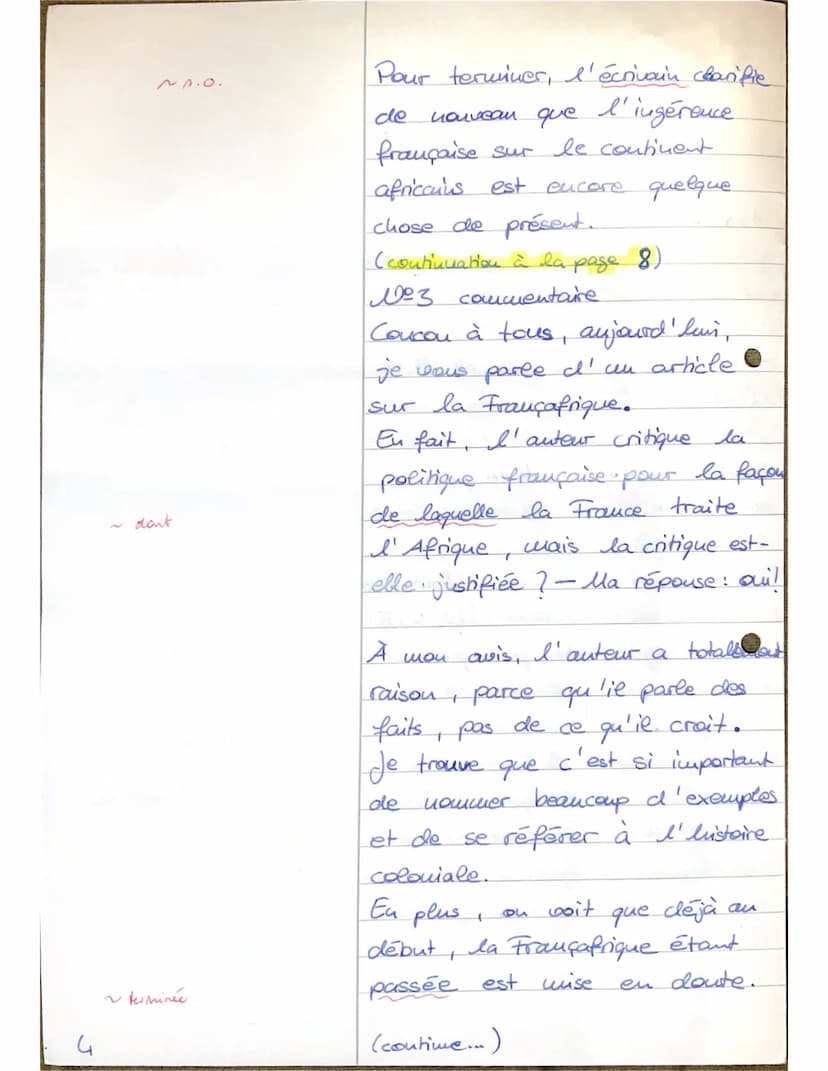 ~ n.O.
Pour terminer, l'écrivain clarifie
de nouveau que l'ingérence
française sur le continent
africains est encore quelque
chose de présent.
(continuation à la page 8)
N°3 commentaire
Coucou à tous, aujourd'hui,
je vous parle d'un article
sur la Françafrique.
En fait, l'auteur critique la
politique française pour la façon
~ dont
de laquelle la France traite
l'Afrique, mais la critique est-
elle justifiée ? – Ma réponse : oui!
À mon avis, l'auteur a totalement
raison, parce qu'il parle des
faits, pas de ce qu'il croit.
Je trouve que c'est si important
de nommer beaucoup d'exemples
et de se référer à l'histoire
coloniale.
En plus, on voit que déjà au
début, la Françafrique étant
~ terminée
passée est mise en doute.
4
(continue...)